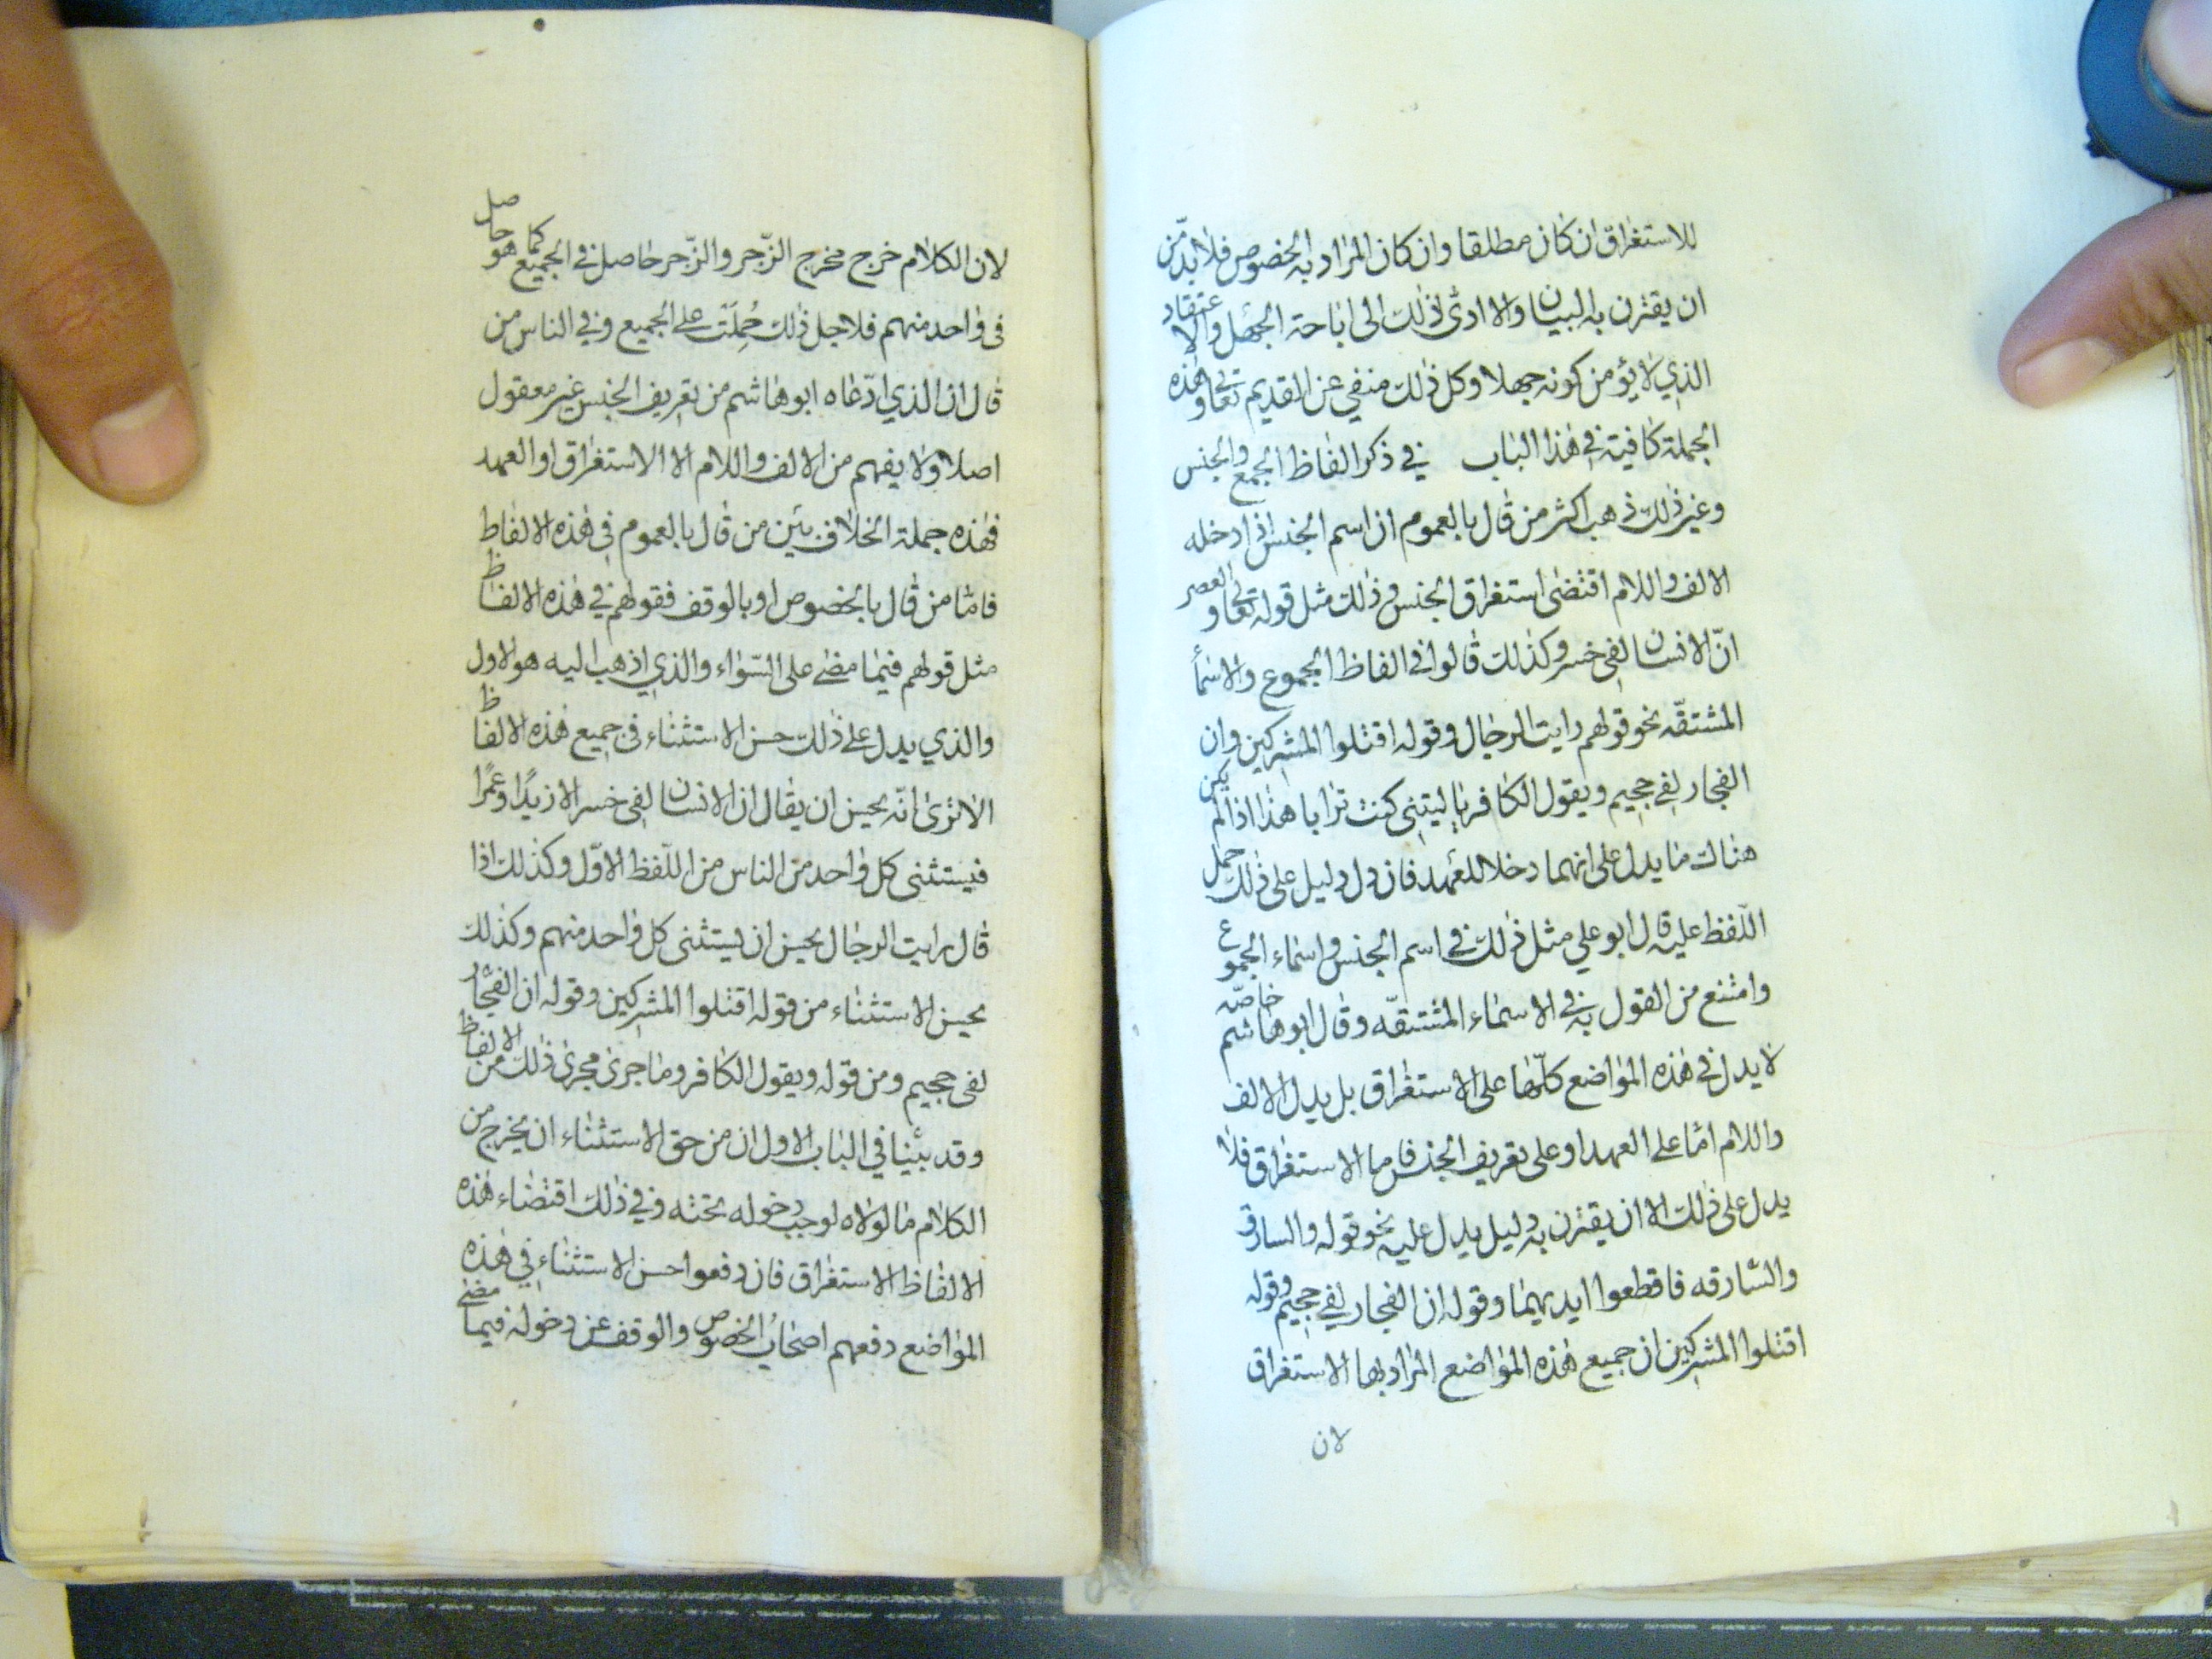 للاستغراق ان كان مطلقا وان كان المراد به الخصوص فلا بدّ من
ان يقترن به البيان والا ادى ذلك الى اباحة الجهل والاعتقاد
الذي لا يؤمن كونه جهلا وكل ذلك منفي عن القديم تعالى وهذه
الجملة كافية في هذا الباب في ذكر الفاظ الجمع والجنس
وغير ذلك ذهب اكثر من قال بالعموم ان اسم الجنس اذا دخله
الالف واللام اقتضى استغراق الجنس وذلك مثل قوله تعالى والعصر
انّ الانسان لفي خسر وكذلك قالوا في الفاظ الجموع والاسماء
المشتقّه نحو قولهم رايت الرجال وقوله اقتلوا المشركين وان
الفجار لفي جحيم ويقول الكافر يا ليتني كنت ترابا هذا اذا لم يكن
هناك ما يدل على انهما دخلا للعهد فان دل دليل على ذلك حمل
اللّفظ عليه قال ابو علي مثل ذلك في اسم الجنس واسماء الجموع
وامتنع من القول به في الاسماء المشتقّه وقال ابو هاشم خاصّه
لا يدل في هذه المواضع كلّها على الاستغراق بل يدل الالف
واللام امّا على العهد او على تعريف الجنس فاما الاستغراق فلا
يدل على ذلك الا ان يقترن به دليل يدل عليه نحو قوله والسارق
والسّارقه فاقطعوا ايديهما وقوله ان الفجار لفي جحيم وقوله
اقتلوا المشركين ان جميع هذه المواضع المراد بها الاستغراق
لان
لان الكلام خرج مخرج الزّجر والزّجر حاصل في الجميع كما هو حاصل
في واحد منهم فلاجل ذلك حُمِلَت على الجميع وفي الناس من
قال ان الذي ادّعاه ابو هاشم من تعريف الجنس غير معقول
اصلا ولا يفهم من الالف واللام الا الاستغراق او العهد
فهذه جملة الخلاف بين من قال بالعموم في هذه الالفاظ
فامّا من قال بالخصوص او بالوقف فقولهم في هذه الالفاظ
مثل قولهم فيما مضى على السّواء والذي اذهب اليه هو الاول
والذي يدل على ذلك حسن الاستثناء في جميع هذه الالفاظ
الا ترى انّه يحسن ان يقال ان الانسان لفي خسر الا زيدًا وعمرًا
فيستثنى كل واحد من الناس من اللّفظ الاوّل وكذلك اذا
قال رايت الرجال يحسن ان يستثنى كل واحد منهم وكذلك
يحسن الاستثناء من قوله اقتلوا المشركين وقوله ان الفجّار
لفي جحيم ومن قوله ويقول الكافر وما جرى مجرى ذلك من الالفاظ
وقد بيّنا في الباب الاول ان من حق الاستثناء ان يخرج من
الكلام ما لولاه لوجب دخوله تحته وفي ذلك اقتضاء هذه
الالفاظ الاستغراق فان دفعوا حسن الاستثناء في هذه
المواضع دفعهم اصحابُ الخصوص والوقف عن دخوله فيما مضى